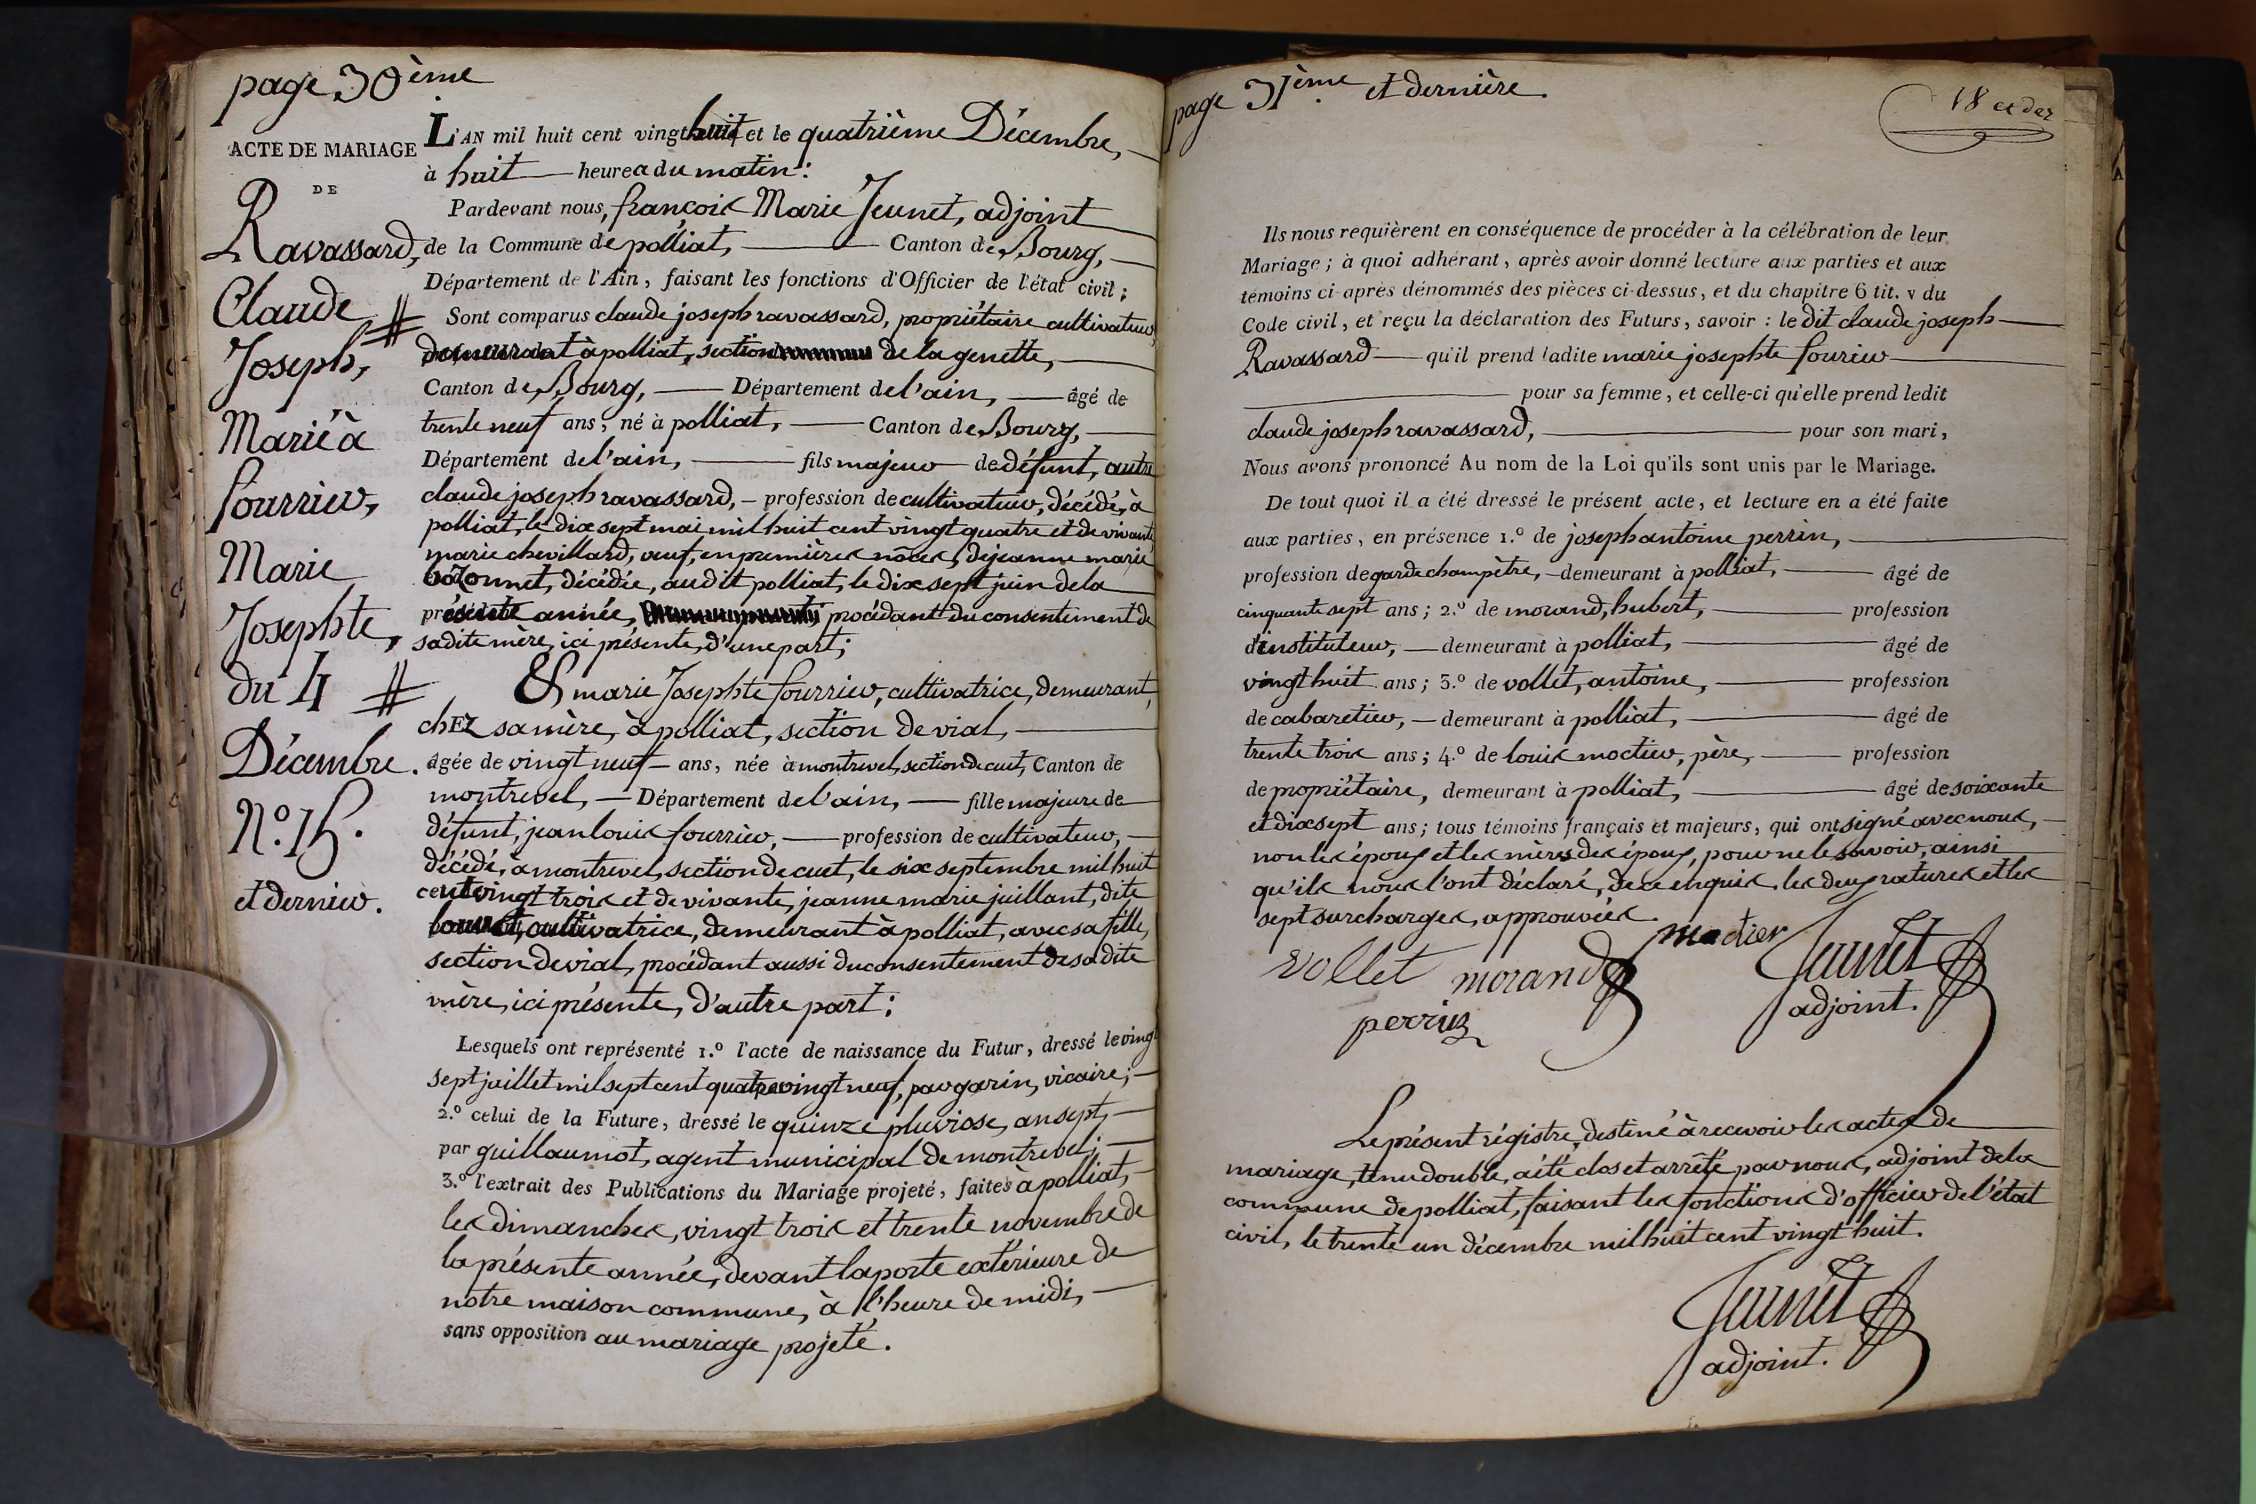 page 30ème
ACTE DE MARIAGE
DE
Ravassard,
Claude
Joseph,
Marié à
fourrier,
Marie
Josephte,
du 4
Décembre.
N.º 15.
et dernier.
L'AN mil huit cent vingt huit et le quatrième Décembre,
à huit heures du matin:
Pardevant nous, françois Marie Jeunet, adjoint
de la Commune de polliat, Canton de Bourg,
Département de l'Ain, faisant les fonctions d'Officier de l'état civil;
Sont comparus claude joseph ravassard, propriétaire cultivateur,
demeurant à polliat, section de la genette,
Canton de Bourg, Département de l'ain, âgé de
trente neuf ans, né à polliat, Canton de Bourg,
Département de l'ain, fils majeur de défunt, autre
claude joseph ravassard, profession de cultivateur, décédé, à
polliat, le dix sept mai mil huit cent vingt quatre et de vivante,
marie chevillard, veuf, en premières nôces, de jeanne marie
décédée, audit polliat, le dix sept juin de la
présente année, procédant du consentement de
sadite mère, ici présente, d'une part;
Et marie Josephte fourrier, cultivatrice, demeurant,
chez sa mère, à polliat, section de vial,
âgée de vingt neuf ans, née à montrevel, section de cuet, Canton de
montrevel, Département de l'ain, fille majeure de
défunt, jean louis fourrier, profession de cultivateur,
décédé, à montrevel, section de cuet, le six septembre mil huit
cent vingt trois et de vivante, jeanne marie juillant, dite
cultivatrice, demeurant à polliat, avec sa fille,
section de vial, procédant aussi du consentement de sadite
mère, ici présente, d'autre part:
Lesquels ont représenté 1.º l'acte de naissance du Futur, dressé le vingt
sept juillet mil sept cent quatre vingt neuf, par garin, vicaire;
2.º celui de la Future, dressé le quinze pluviose, an sept,
par guillaumot, agent municipal de montrevel;
3.º l'extrait des Publications du Mariage projeté, faites à polliat,
les dimanches, vingt trois et trente novembre de
la présente année, devant la porte extérieure de
notre maison commune, à l'heure de midi,
sans opposition au mariage projeté.
page 31ème et dernière.
18 et der
Ils nous requièrent en conséquence de procéder à la célébration de leur
Mariage; à quoi adhérant, après avoir donné lecture aux parties et aux
témoins ci-après dénommés des pièces ci-dessus, et du chapitre 6 tit. v du
Code civil, et reçu la déclaration des Futurs, savoir: le dit claude joseph
Ravassard qu'il prend ladite marie josephte fourier
pour sa femme, et celle-ci qu'elle prend ledit
claude joseph ravassard, pour son mari,
Nous avons prononcé Au nom de la Loi qu'ils sont unis par le Mariage.
De tout quoi il a été dressé le présent acte, et lecture en a été faite
aux parties, en présence 1.º de joseph antoine perrin,
profession de garde champètre, demeurant à polliat, âgé de
cinquante sept ans; 2.º de morand, hubert, profession
d'instituteur, demeurant à polliat, âgé de
vingt huit ans; 3.º de vollet, antoine, profession
de cabaretier, demeurant à polliat, âgé de
trente trois ans; 4.º de louis moctier, père, profession
de propriétaire, demeurant à polliat, âgé de soixante
et dix sept ans; tous témoins français et majeurs, qui ont signé avec nous,
non les époux et les mères des époux, pour ne le savoir, ainsi
qu'ils nous l'ont déclaré, de ce enquis, les deux ratures et les
sept surcharges, approuvées.
vollet morand moctier Jeunet
perrin adjoint.
Le présent régistre, destiné à recevoir les actes de
mariage, tenu double, a été clos et arrêté par nous, adjoint de la
commune de polliat, faisant les fonctions d'officier de l'état
civil, le trente un décembre mil huit cent vingt huit.
Jeunet
adjoint.